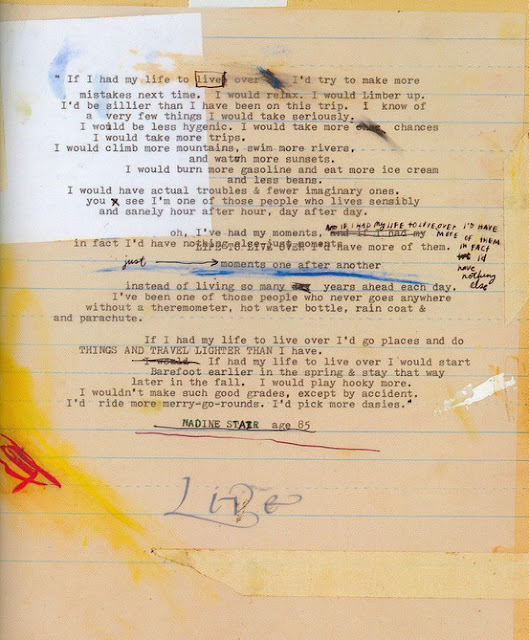 " If I had my life to live over I'd try to make more
mistakes next time. I would relax. I would Limber up.
I'd be sillier than I have been on this trip. I know of
a very few things I would take seriously.
I would be less hygenic. I would take more chances
I would take more trips.
I would climb more mountains, swim more rivers,
and watch more sunsets.
I would burn more gasoline and eat more ice cream
and less beans.
I would have actual troubles & fewer imaginary ones.
you see I'm one of those people who lives sensibly
and sanely hour after hour, day after day.
oh, I've had my moments, and if I had my
IF I HAD MY LIFE TO LIVE OVER I'D HAVE
MORE
OF THEM.
in fact I'd have nothing else just moments
LIFE TO LIVE OVER I'd have more of them.
IN FACT
I'd
have
nothing
else
just moments one after another
instead of living so many years ahead each day.
I've been one of those people who never goes anywhere
without a theremometer, hot water bottle, rain coat &
and parachute.
If I had my life to live over I'd go places and do
THINGS AND TRAVEL LIGHTER THAN I have.
I would If I had my life to live over I would start
Barefoot earlier in the spring & stay that way
later in the fall. I would play hooky more.
I wouldn't make such good grades, except by accident.
I'd ride more merry-go-rounds. I'd pick more dasies."
NADINE STAIR age 85
Live